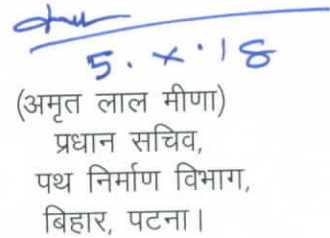 5.x.18
(अमृत लाल मीणा)
प्रधान सचिव,
पथ निर्माण विभाग,
बिहार, पटना।